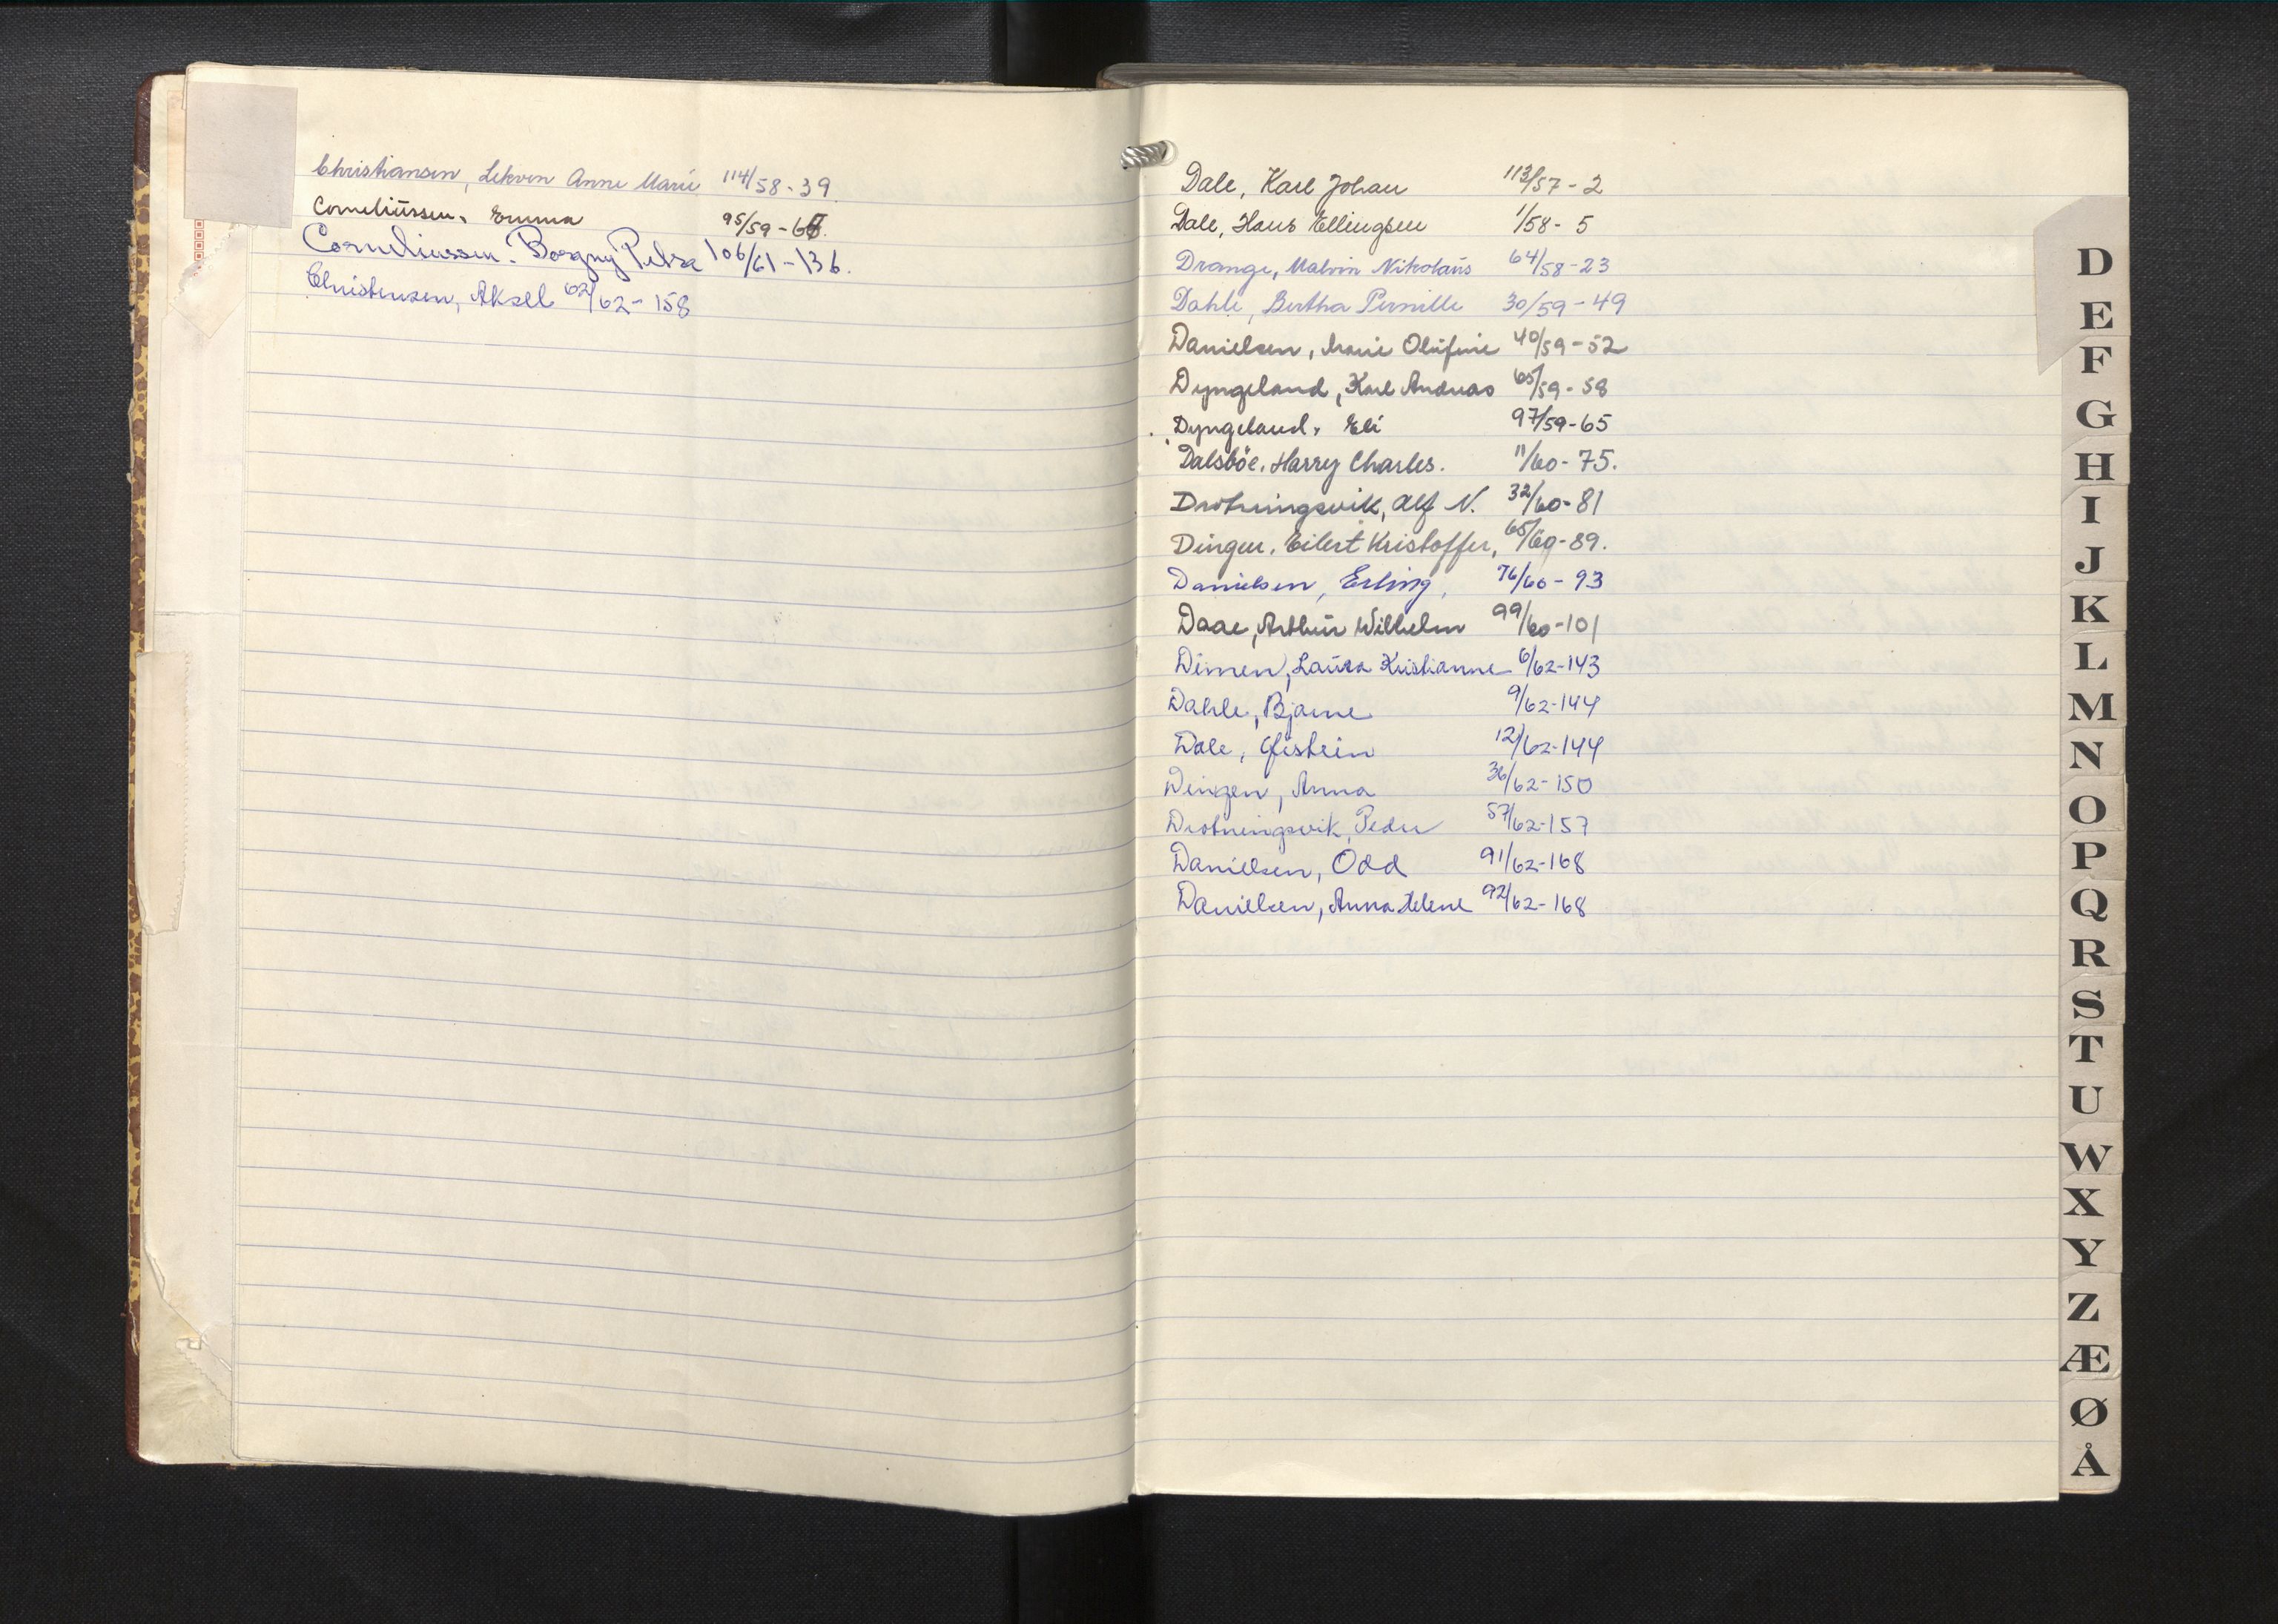 Christiansen, Lekven Anne Marie 114/58 - 39.
Corneliussen, Emma 95/59 - 6
Corneliussen. Borgny Petra 106/61 - 136.
Christensen, Aksel 62/62 - 158
Dale, Karl Johan 113/57 - 2
Dale, Hans Ellingsen 1/58 - 5
Drange, Malvin Nikolaus 64/58 - 23
Dahle, Bertha Pernille 30/59 - 49
Danielsen, Marie Olufine 40/59 - 52
Dyngeland, Karl Andreas 65/59 - 58
Dyngeland, Eli 97/59 - 65
Dalsböe, Harry Charles. 11/60 - 75.
Drotningsvik, Alf N. 32/60 - 81
Dingen, Eilert Kristoffer, 65/60 - 89.
Danielsen, Erling, 76/60 - 93
Daae, Arthur Wilhelm 99/60 - 101
Dimen, Laura Kristianne 6/62 - 143
Dahle, Bjarne 9/62 - 144
Dale, Øistein 12/62 - 144
Dingen, Anna 36/62 - 150
Drotningsvik, Peder 57/62 - 157
Danielsen, Odd 91/62 - 168
Danielsen, Anna Helene 92/62 - 168
D
E
F
G
H
I
J
K
L
M
N
O
P
Q
R
S
T
U
W
X
Y
Z
Æ
Ø
Å